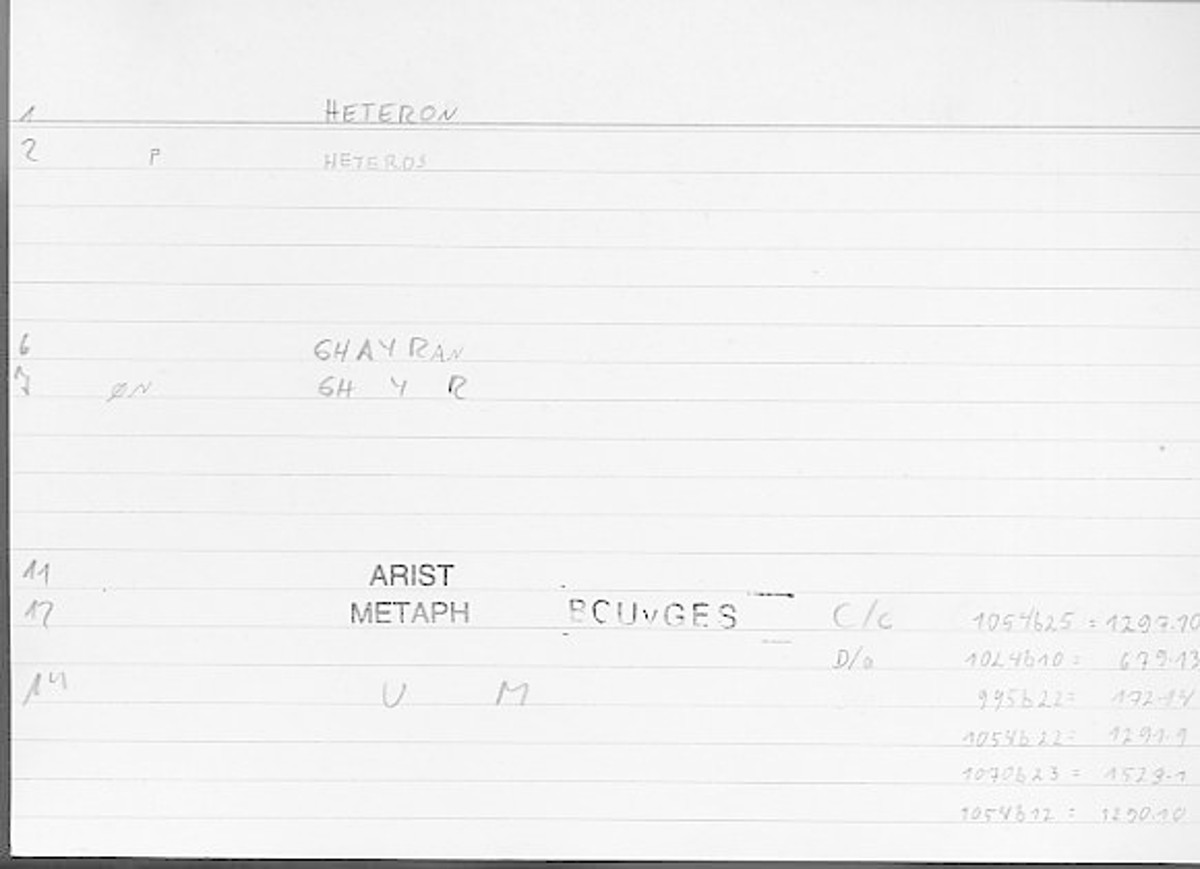 1 HETERON
2 P HETEROS
6 GHAYRAN
7 ØN GH Y R
11 ARIST
12 METAPH BOUYGES C/c 1054b25 = 1297.10
D/a 1024b10 = 679.13
14 U M 995b22 = 172.14
1054b22 = 1291.9
1070b23 = 1529.1
1054b12 = 1290.10